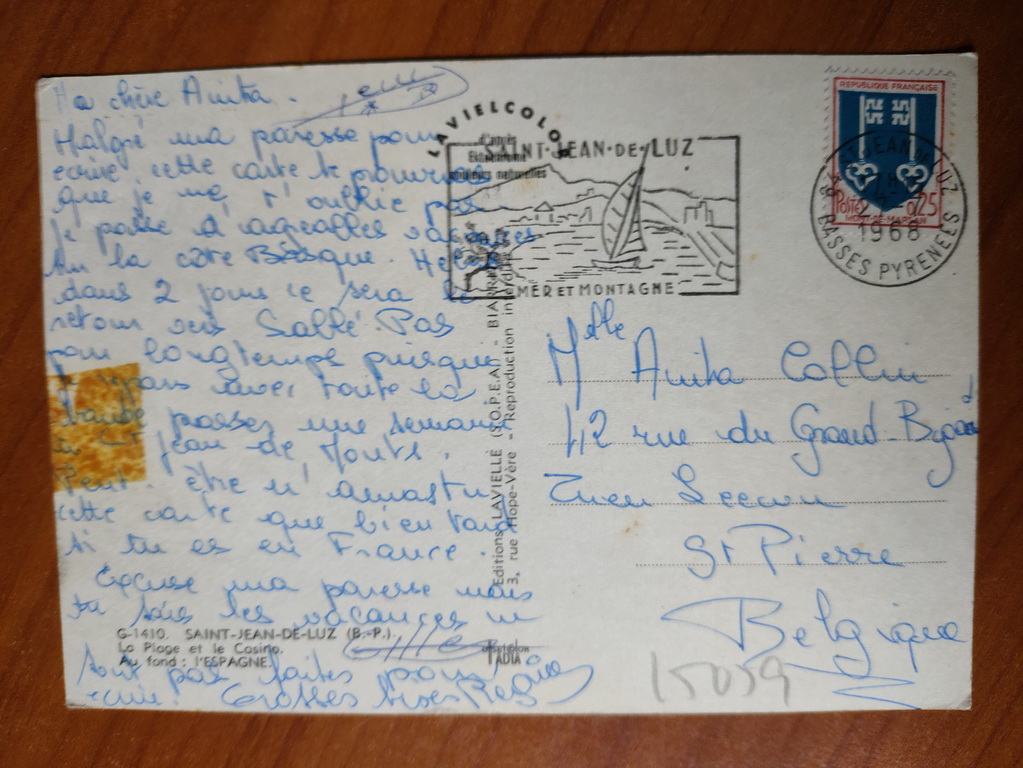 Ma chère Anita.
Malgré ma paresse pour
écrire cette carte te prouvera
que je ne t'oublie pas
je passe d'agréables vacances
sur la côte Basque. Hélas
dans 2 jours ce sera le
retour vers Sablé. Pas
pour longtemps puisque
avec toute la
passer une semaine
à St Jean de Monts.
Peut-être n'auras tu
cette carte que bien tard
si tu es en France.
Excuse ma paresse mais
tu sais les vacances ne
sont pas faites pour
écrire. Grosses bises
LAVIELCOLOR
d'après
Ektachrome
couleurs naturelles
SAINT-JEAN-DE-LUZ
MER ET MONTAGNE
REPUBLIQUE FRANÇAISE
Postes 0,25
MONT-DE-MARSAN
ST JEAN DE LUZ
1968
BASSES PYRENEES
Editions LAVIELLE (S.O.P.E.A) - BIARRITZ
3, rue Hope-Vère - Reproduction interdite
Melle Anita Collin
42 rue du Grand-Bigard
St Pierre
Belgique
G-1410. SAINT-JEAN-DE-LUZ (B.-P.).
La Plage et le Casino.
Au fond : l'ESPAGNE.
15059